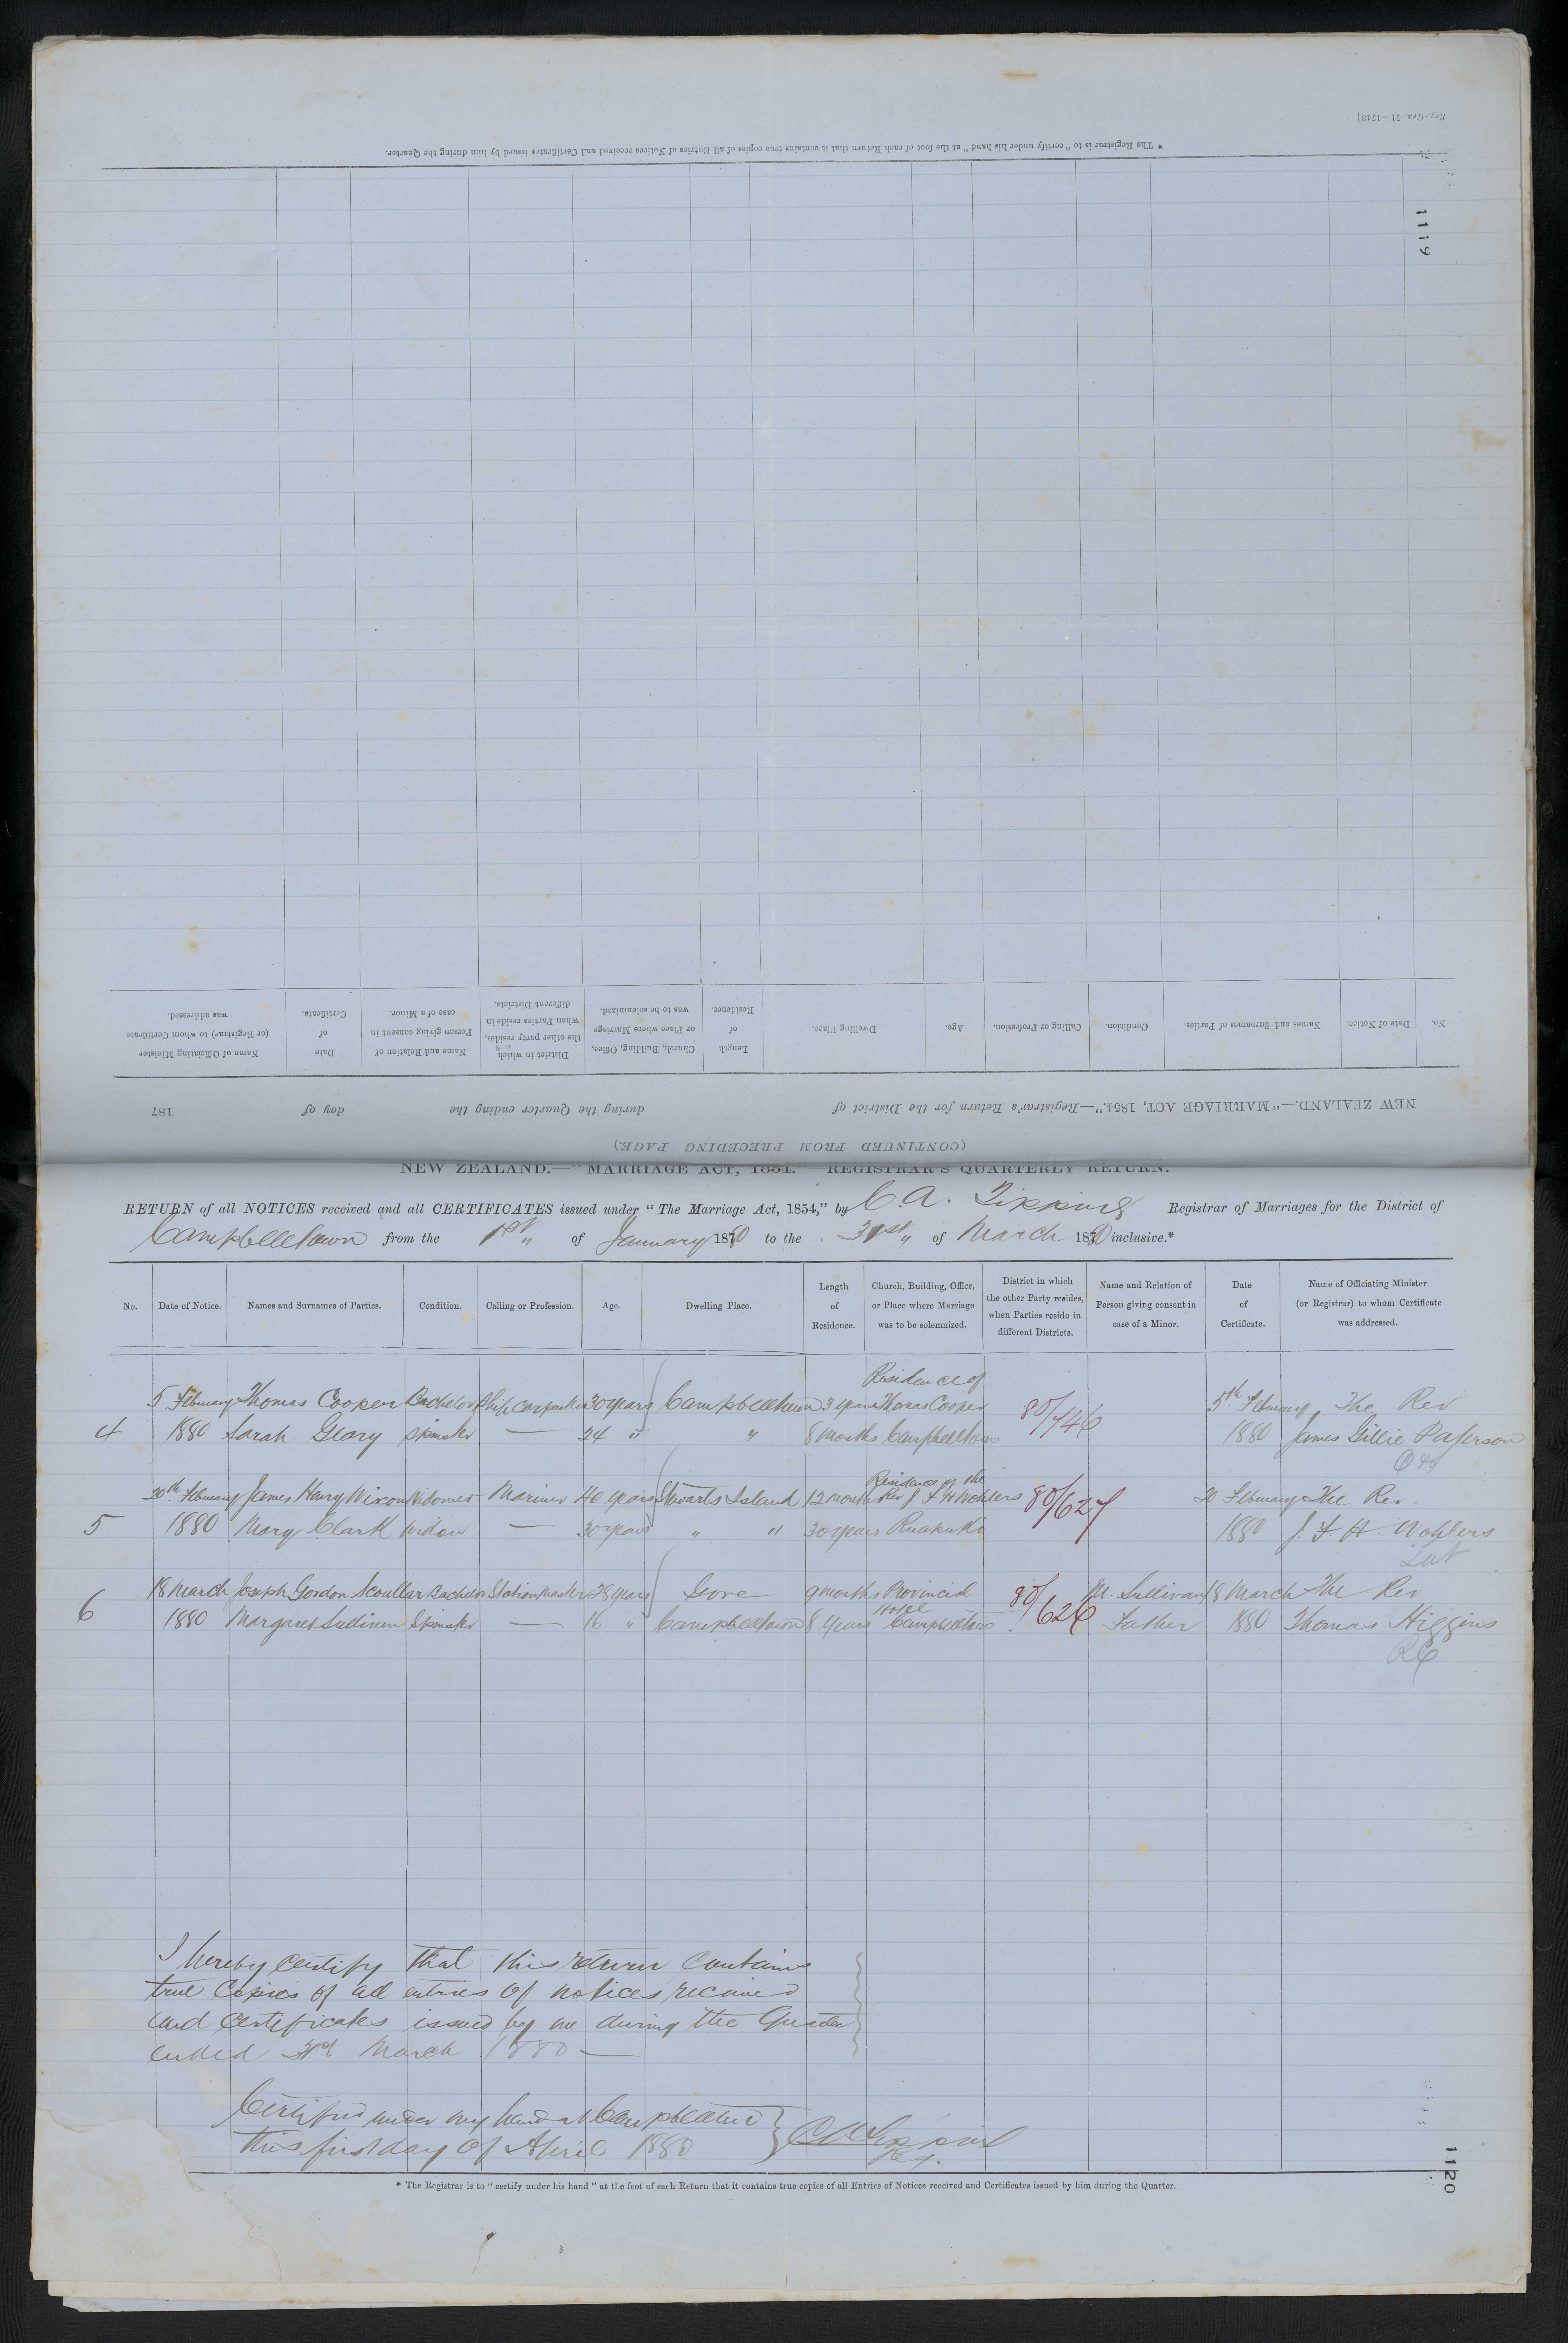 Reg.-Gen. 11—1748]
* The Registrar is to "certify under his hand" at the foot of each Return that it contains true copies of all Entries of Notices received and Certificates issued by him during the Quarter.
1119
No.
Date of Notice.
Names and Surnames of Parties.
Condition.
Calling or Profession.
Age.
Dwelling Place.
Length of Residence.
Church, Building, Office, or Place where Marriage was to be solemnized.
District in which the other party resides, when Parties reside in different Districts.
Name and Relation of Person giving consent in case of a Minor.
Date of Certificate.
Name of Officiating Minister (or Registrar) to whom Certificate was addressed.
NEW ZEALAND.—"MARRIAGE ACT, 1854."—Registrar's Return for the District of during the Quarter ending the day of 187
(CONTINUED FROM PRECEDING PAGE.)
NEW ZEALAND.—"MARRIAGE ACT, 1854." REGISTRAR'S QUARTERLY RETURN.
RETURN of all NOTICES received and all CERTIFICATES issued under "The Marriage Act, 1854," by C. A. Tipping Registrar of Marriages for the District of
Campbelltown from the 1st " of January 1880 to the 31st " of March 1880 inclusive.*
No.
Date of Notice.
Names and Surnames of Parties.
Condition.
Calling or Profession.
Age.
Dwelling Place.
Length of Residence.
Church, Building, Office, or Place where Marriage was to be solemnized.
District in which the other Party resides, when Parties reside in different Districts.
Name and Relation of Person giving consent in case of a Minor.
Date of Certificate.
Name of Officiating Minister (or Registrar) to whom Certificate was addressed.
Residence of
5 February Thomas Cooper Bachelor Ship Carpenter 30 years Campbelltown 3 years Thomas Cooper 80/746 5th February The Rev
4 1880 Sarah Geary Spinster — 24 " " 8 months Campbelltown 1880 James Gillie Paterson
Residence of the
20th February James Henry Wixon Widower Mariner 40 years Stewarts Island 12 months Rev J F H Wohlers 80/627 20 February The Rev.
5 1880 Mary Clark Widow — 30 years " " 30 years Ruapuke 1880 J. F. H. Wohlers
Lut
18 March Joseph Gordon Scoullar Bachelor Station Master 28 years Gore 9 months Provincial 80/626 M. Sullivan 18 March The Rev
Hotel
6 1880 Margaret Sullivan Spinster — 16 " Campbelltown 8 years Campbelltown Father 1880 Thomas Higgins
RC
I hereby certify that this return contains
true copies of all entries of notices received
and certificates issued by me during the Quarter
ended 31st March 1880 —
Certified under my hand at Campbelltown
this first day of April 1880
C A Tipping
Reg.
* The Registrar is to "certify under his hand" at the foot of each Return that it contains true copies of all Entries of Notices received and Certificates issued by him during the Quarter.
1120